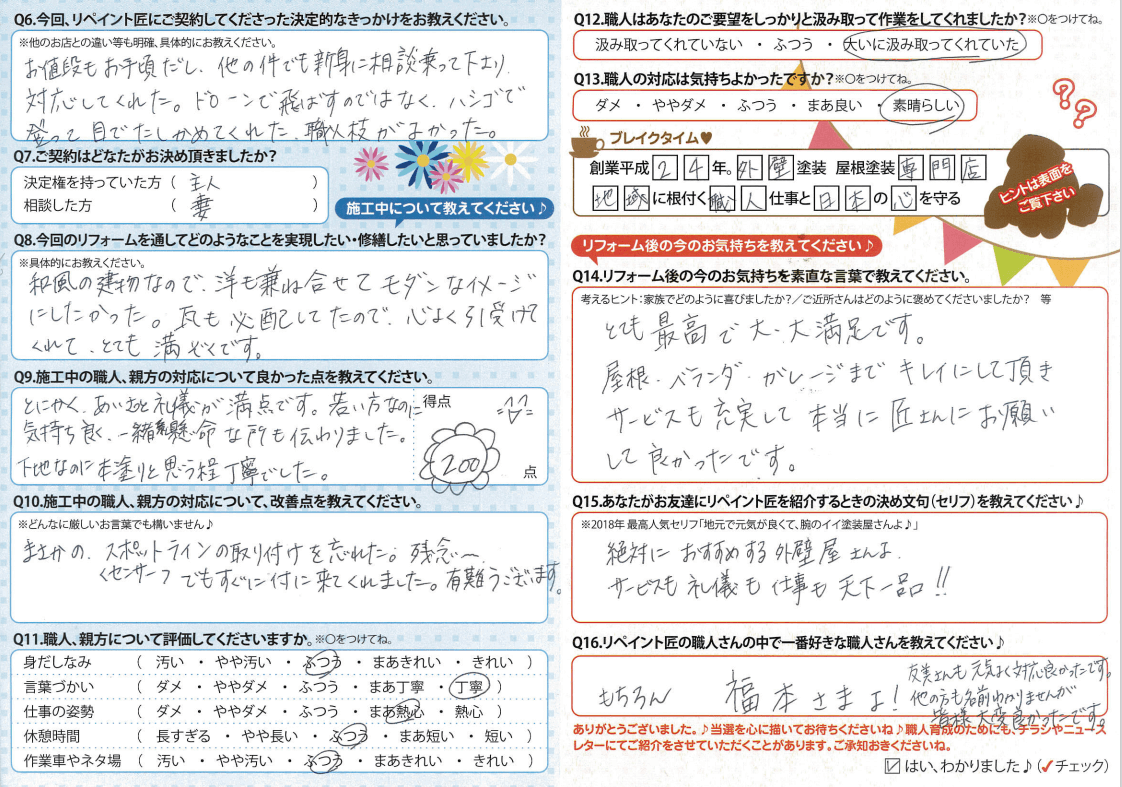 Q6.今回、リペイント匠にご契約してくださった決定的なきっかけをお教えください。
※他のお店との違い等も明確、具体的にお教えください。
お値段もお手頃だし、他の件でも親身に相談乗って下さり
対応してくれた。ドローンで飛ばすのではなく、ハシゴで
登って目でたしかめてくれた、職人技がよかった。
Q7.ご契約はどなたがお決め頂きましたか?
決定権を持っていた方( 主人 )
相談した方 ( 妻 )
施工中について教えてください♪
Q8.今回のリフォームを通してどのようなことを実現したい・修繕したいと思っていましたか?
※具体的にお教えください。
和風の建物なので、洋も兼ね合せてモダンなイメージ
にしたかった。瓦も心配してたので、心よく引受けて
くれて、とても満ぞくです。
Q9.施工中の職人、親方の対応について良かった点を教えてください。
とにかく、あいさつと礼儀が満点です。若い方なのに
気持ち良く、一緒懸命な所も伝わりました。
下地なのに本塗りと思う程丁寧でした。
得点
200 点
Q10.施工中の職人、親方の対応について、改善点を教えてください。
※どんなに厳しいお言葉でも構いません♪
まさかの、スポットラインの取り付けを忘れた。残念〜
くセンサーつ でもすぐに付に来てくれました。有難うございます。
Q11.職人、親方について評価してくださいますか。※〇をつけてね。
身だしなみ ( 汚い ・ やや汚い ・ ふつう ・ まあきれい ・ きれい )
言葉づかい ( ダメ ・ ややダメ ・ ふつう ・ まあ丁寧 ・ 丁寧 )
仕事の姿勢 ( ダメ ・ ややダメ ・ ふつう ・ まあ熱心 ・ 熱心 )
休憩時間 ( 長すぎる ・ やや長い ・ ふつう ・ まあ短い ・ 短い )
作業車やネタ場 ( 汚い ・ やや汚い ・ ふつう ・ まあきれい ・ きれい )
Q12.職人はあなたのご要望をしっかりと汲み取って作業をしてくれましたか?※〇をつけてね。
汲み取ってくれていない ・ ふつう ・ 大いに汲み取ってくれていた
Q13.職人の対応は気持ちよかったですか?※〇をつけてね。
ダメ ・ ややダメ ・ ふつう ・ まあ良い ・ 素晴らしい
ブレイクタイム♥
創業平成24年。外壁塗装 屋根塗装専門店
地域に根付く職人仕事と日本の心を守る
ヒントは表面を
ご覧下さい
リフォーム後の今のお気持ちを教えてください♪
Q14.リフォーム後の今のお気持ちを素直な言葉で教えてください。
考えるヒント:家族でどのように喜びましたか?/ご近所さんはどのように褒めてくださいましたか? 等
とても最高で大・大満足です。
屋根・ベランダ・ガレージまでキレイにして頂き
サービスも充実して本当に匠さんにお願い
して良かったです。
Q15.あなたがお友達にリペイント匠を紹介するときの決め文句(セリフ)を教えてください♪
※2018年 最高人気セリフ「地元で元気が良くて、腕のイイ塗装屋さんよ♪」
絶対におすすめする外壁屋さんよ、
サービスも礼儀も仕事も天下一品!!
Q16.リペイント匠の職人さんの中で一番好きな職人さんを教えてください♪
もちろん 福本さまよ!
さんも元気よく対応良かったです。
他の方も名前わかりませんが
皆様大変良かったです。
ありがとうございました。♪当選を心に描いてお待ちくださいね♪職人育成のためにも、チラシやニュース
レターにてご紹介をさせていただくことがあります。ご承知おきくださいね。
☑はい、わかりました♪(✓チェック)